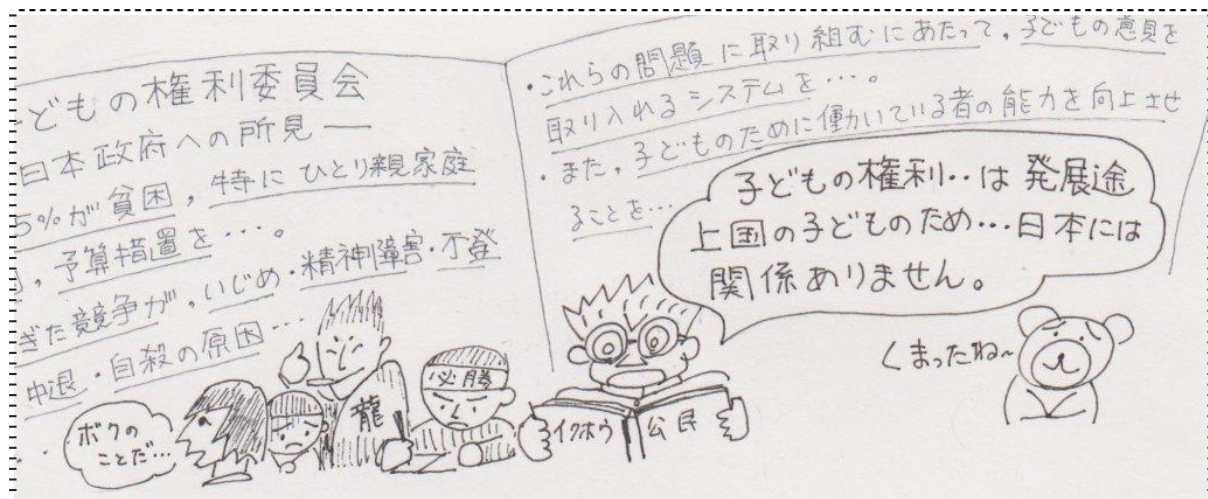 子どもの権利委員会
日本政府への所見―
5%が貧困，特にひとり親家庭
，予算措置を…。
ぎた競争が，いじめ・精神障害・不登
中退・自殺の原因…
・これらの問題に取り組むにあたって，子どもの意見を
取り入れるシステムを…。
・また，子どものために働いている者の能力を向上させ
ることを…
子どもの権利‥は発展途
上国の子どものため…日本には
関係ありません。
くまったね～
ボクの
ことだ…
龍
必勝
イクホウ
公民